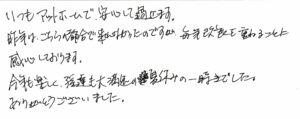 いつもアットホームで、安心して過ごせます。
昨年は、こちらの都合で来れなかったのですが、毎年改良を重ねることに
感心しております。
今年も楽しく、孫達も大満足の夏休みの一時でした。
ありがとうございました。